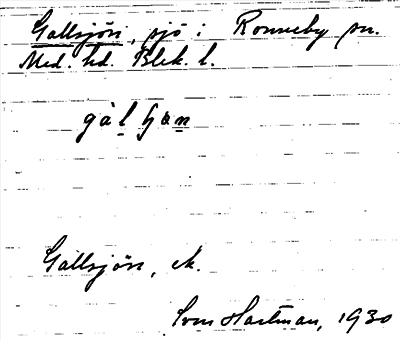 Gallsjön, sjö i Ronneby sn.
Med. hd. Blek. l.
Gallsjön, ek.
Sven Hartman, 1930